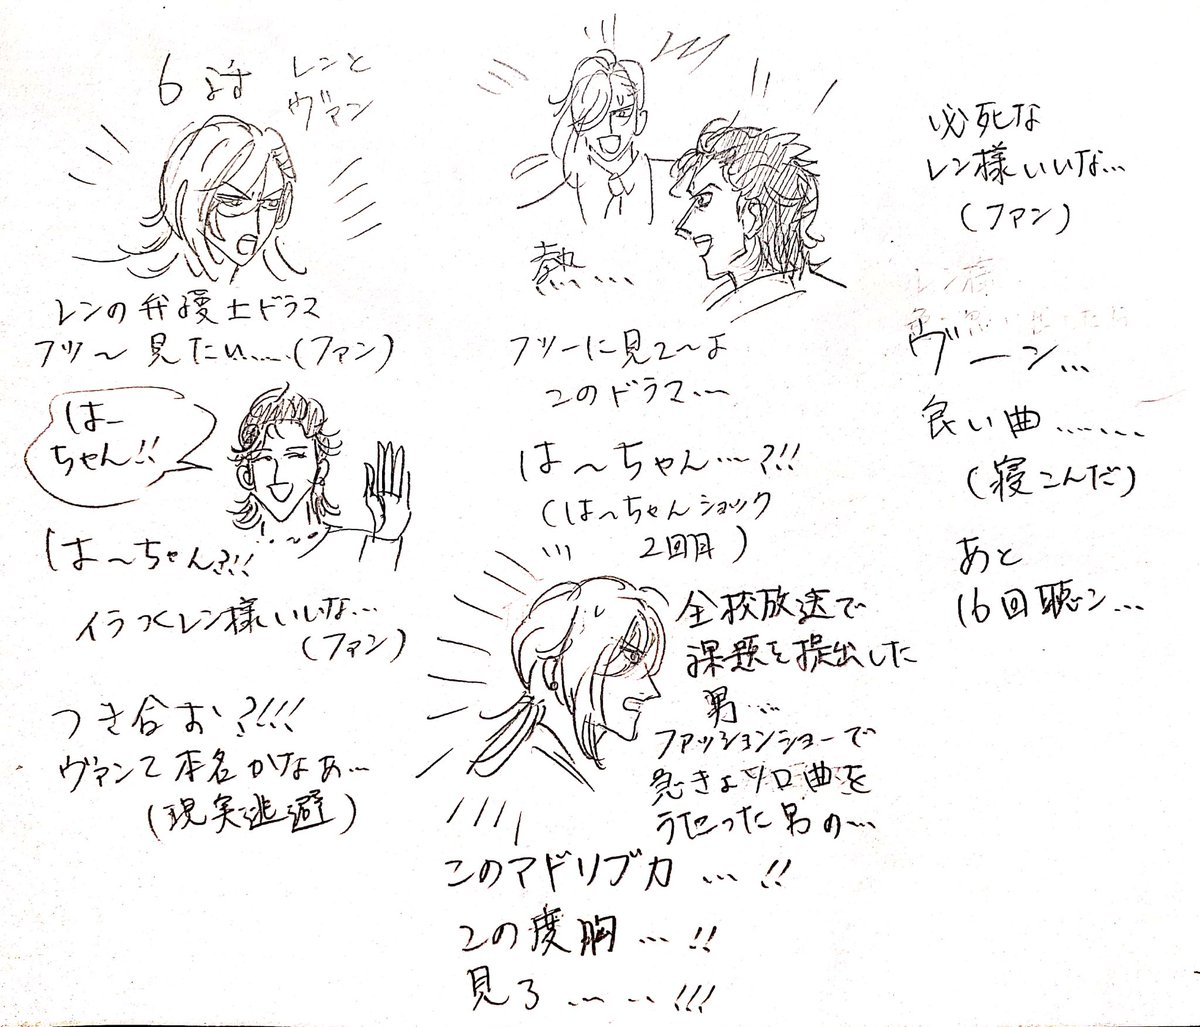 6話
レンと
ヴァン
レンの弁護士ドラマ
フツ〜見たい……(ファン)
はー
ちゃん!!
は〜ちゃん?!!
イラつくレン様いいな…
(ファン)
つき合お?!!!
ヴァンて本名かなぁ…
(現実逃避)
熱…
フツーに見て〜よ
このドラマ…
は〜ちゃん…?!!
(は〜ちゃんショック
2回目)
全校放送で
課題を提出した
男…
ファッションショーで
急きょソロ曲を
うたった男の…
このアドリブ力…!!
この度胸…!!
見ろ……!!!
必死な
レン様いいな…
(ファン)
レン様
ヴーン…
良い曲……
(寝こんだ)
あと
16回聴こ…